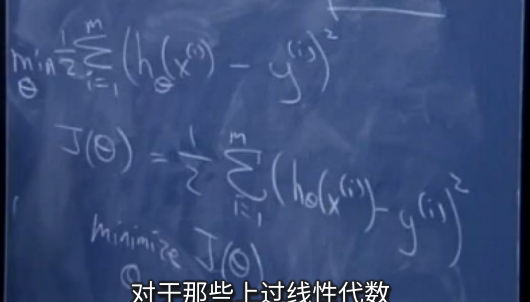 min θ 1/2 Σ i=1 m (hθ(x^(i)) - y^(i))²
J(θ) = 1/2 Σ i=1 m (hθ(x^(i)) - y^(i))²
minimize θ J(θ)
对于那些上过线性代数